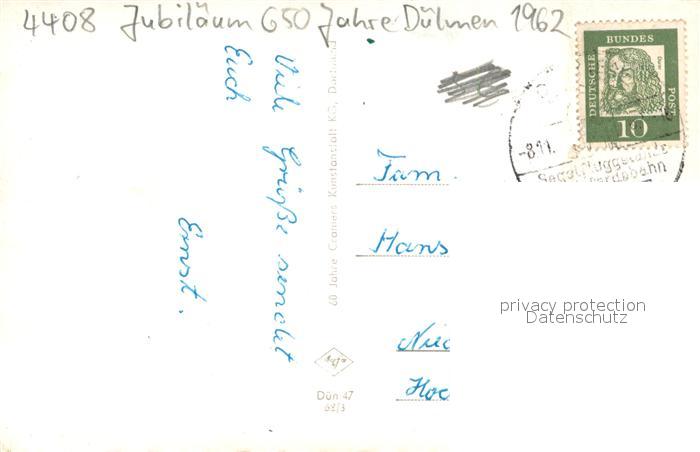 4408 Jubiläum 650 Jahre Dülmen 1962
Viele Grüße sendet
Euch
Ernst.
60 Jahre Cramers Kunstanstalt KG, Dortmund
Dün 47
62/3
Fam.
Hans
Nied
Hoc
DEUTSCHE
BUNDES
POST
10
-8.11.
privacy protection
Datenschutz